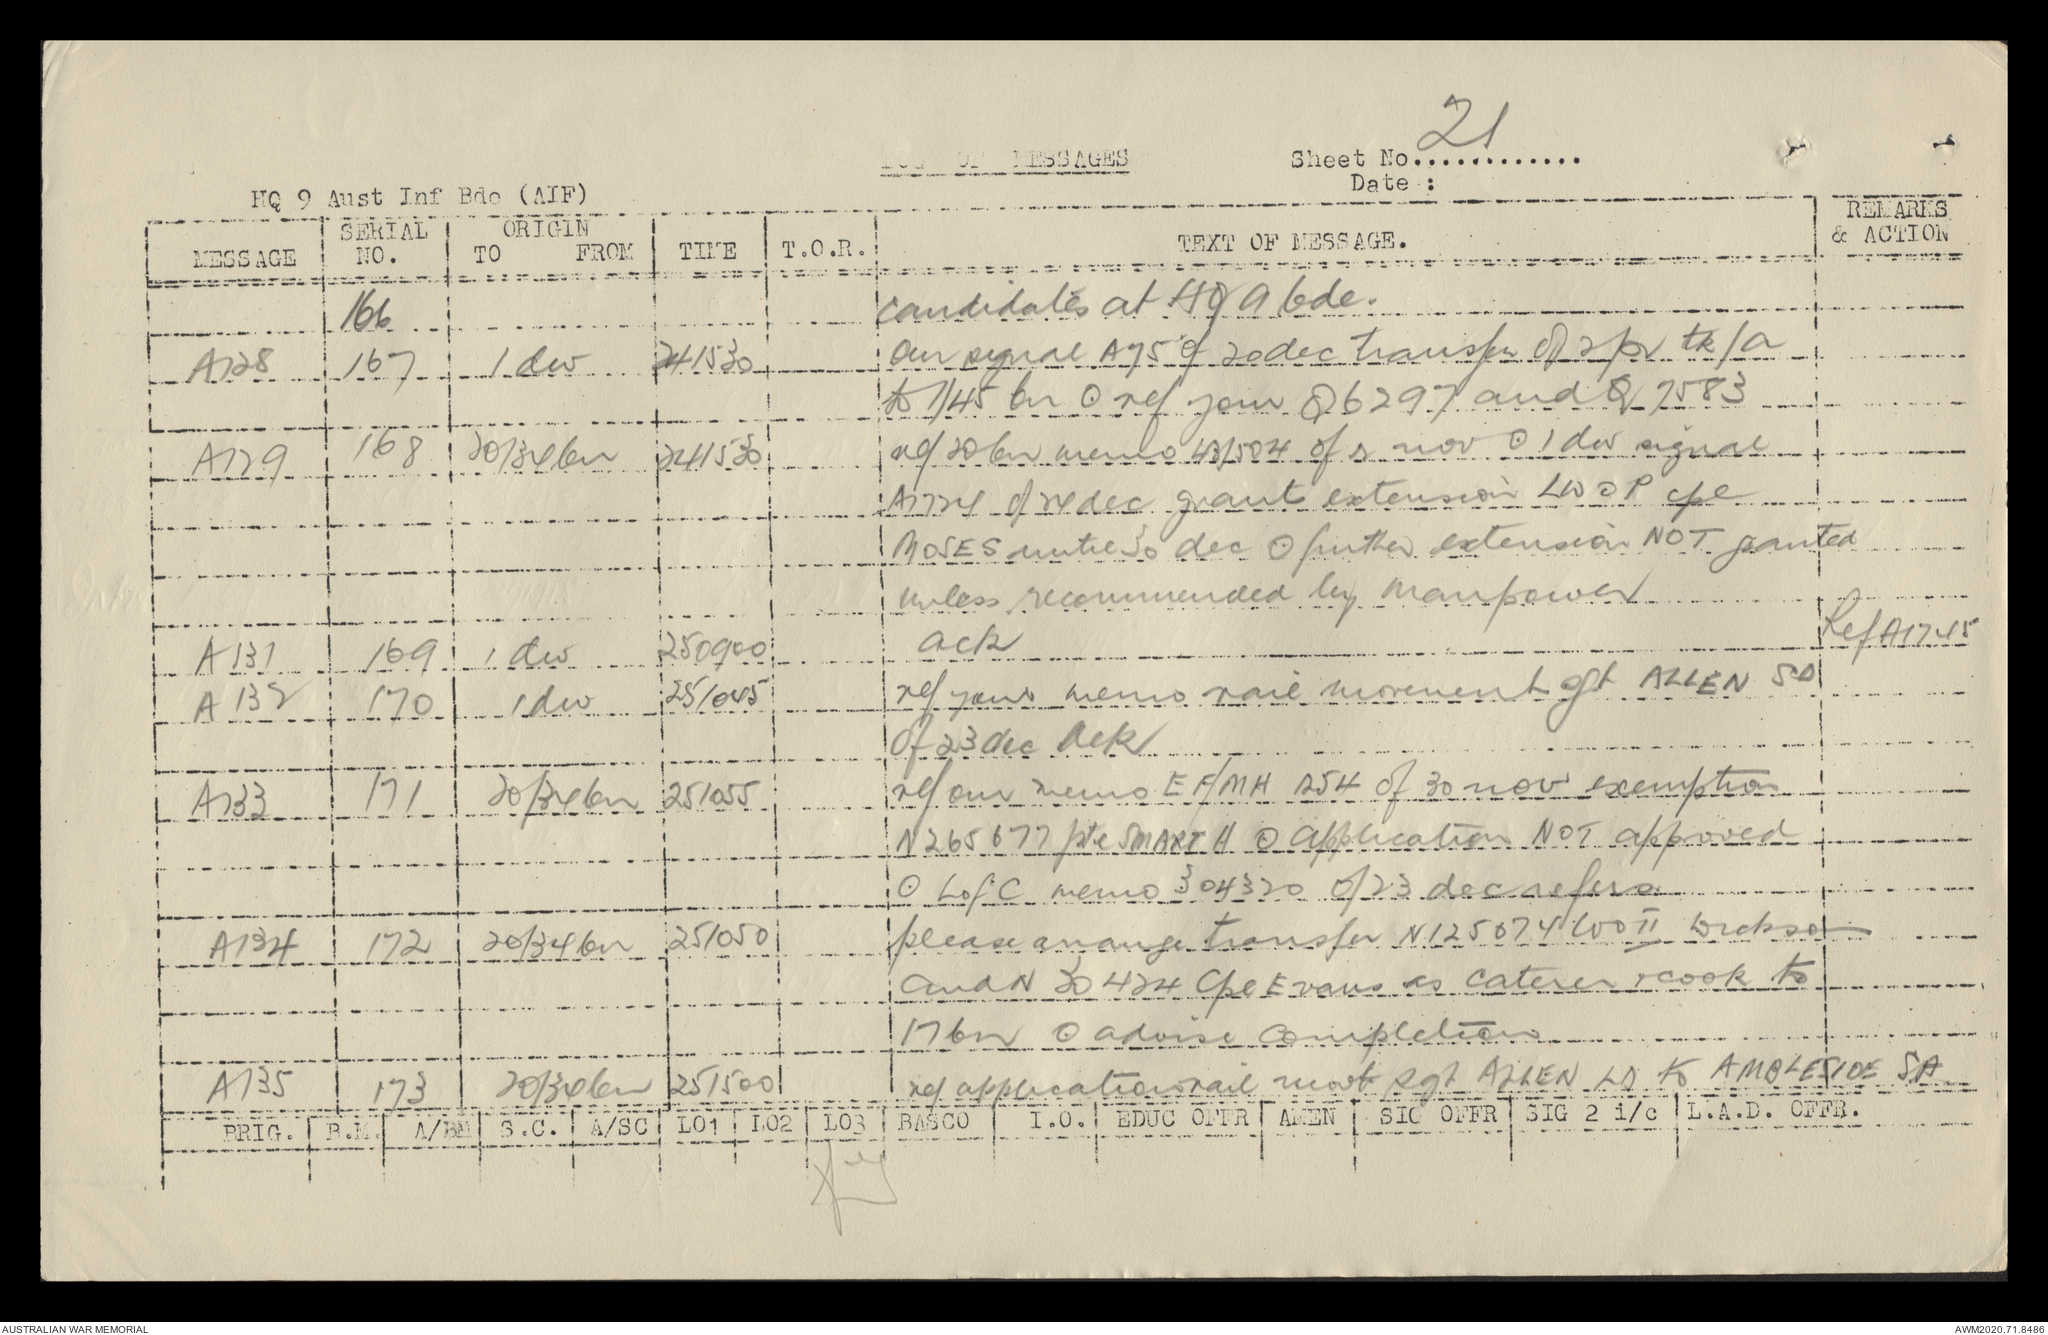 LOG OF MESSAGES
Sheet No. 21
Date :
HQ 9 Aust Inf Bde (AIF)
MESSAGE SERIAL NO. ORIGIN TO FROM TIME T.O.R. TEXT OF MESSAGE. REMARKS & ACTION
166 candidates at HQ 9 bde.
A728 167 1 div 241530 our signal A75 of 20 dec transfer of 2pr tk/a
to 1/45 bn ⊙ ref your Q6297 and Q 7583
A729 168 20/34 bn 241530 ref 20 bn memo 43/504 of 2 nov ⊙ 1 div signal
A1724 of 24 dec grants extension LWOP cpl
MOSES until 30 dec ⊙ further extension NOT granted
unless recommended by manpower
A731 169 1 div 250900 ack Ref A1745
A 732 170 1 div 251045 ref your memo rail movement sgt ALLEN SA
of 23 dec Ack
A733 171 20/34 bn 251055 ref our memo EF/MH 1254 of 30 nov exemption
N265677 pte SMART H ⊙ application NOT approved
⊙ L of C memo 304320 of 23 dec refers
A734 172 20/34 bn 251050 please arrange transfer N125074 WO II Dickson
and N 30424 Cpl Evans as caterer & cook to
17 bn ⊙ advise completion
A735 173 20/34 bn 251500 ref application rail movt sgt ALLEN LD to AMBLESIDE SA
BRIG. B.M. A/BM S.C. A/SC LO1 LO2 LO3 BASCO I.O. EDUC OFFR AMEN SIG OFFR SIG 2 i/c L.A.D. OFFR.
AUSTRALIAN WAR MEMORIAL
AWM2020.71.8486